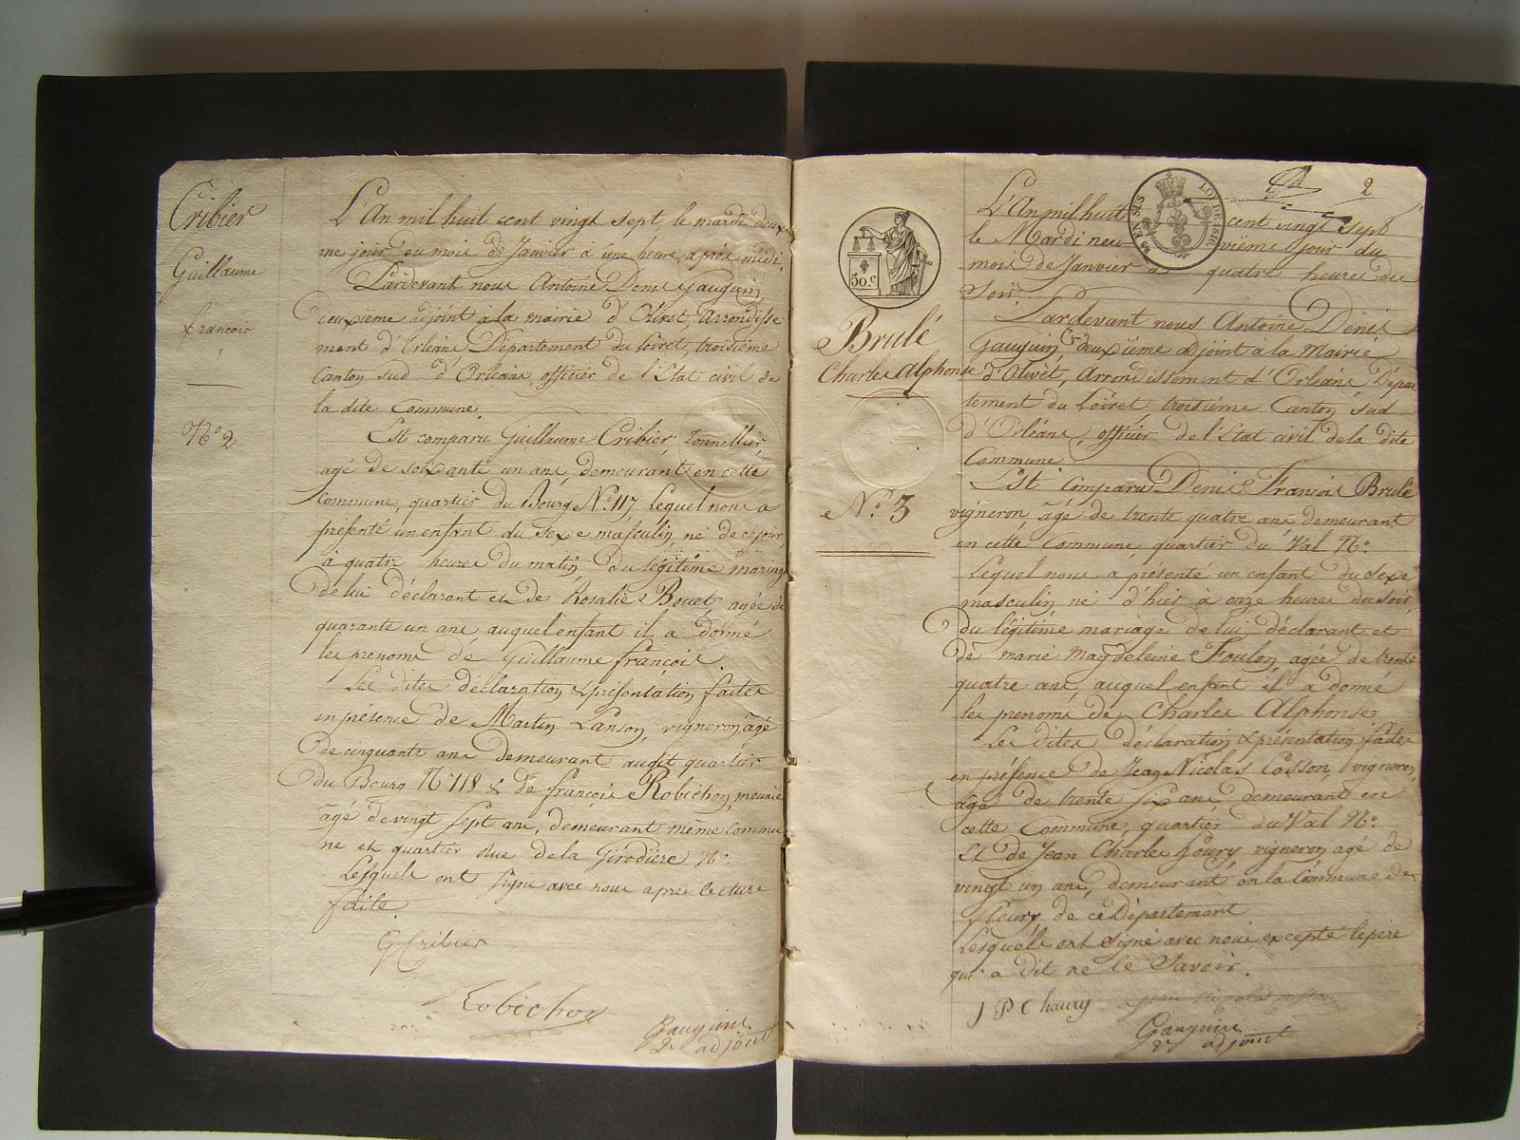 Cribier
Guillaume
françois
N.º 2
L'An mil huit cent vingt sept, le mardi deux
me jour du mois de Janvier à une heure après midi.
Pardevant nous Antoine Denis Gauguin
deuxieme adjoint à la mairie d'Olivet, Arrondisse
ment d'Orleans, Département du Loiret, troisième
Canton sud d'Orleans, officier de l'Etat civil de
la dite Commune.
Est comparu Guillaume Cribier, Tonnellier
agé de soixante un ans demeurant en cette
Commune, quartier du Bourg N.º 117, lequel nous a
présenté un enfant du Sexe masculin, né de ce jour
à quatre heures du matin du légitime mariage
de lui déclarant et de Rosalie Bouet, agée de
quarante un ans, auquel enfant il a donné
les prenoms de Guillaume françois.
Les dites déclaration & présentation faites
en présence de Martin Lanson, vigneron agé
de cinquante ans demeurant audit quartier
du Bourg N.º 118 & de françois Robichon, meunier
âgé de vingt sept ans, demeurant même Commu
ne et quartier rue de la Girodière N.º
Lesquels ont signé avec nous après lecture
faite.
G Cribier
Robichon
Gauguin
2e adjoint
2
50.c
Brulé
Charles Alphonse
N.º 3
L'An mil huit cent vingt sept
le Mardi neuvieme jour du
mois de Janvier à quatre heures du
Soir.
Pardevant nous Antoine Denis
Gauguin, deuxieme adjoint à la Mairie
d'Olivet, Arrondissement d'Orleans Dépar
tement du Loiret, troisième Canton sud
d'Orléans, officier de l'Etat civil de la dite
Commune.
Est Comparu Denis François Brulé
vigneron, âgé de trente quatre ans demeurant
en cette Commune quartier du Val N.º
Lequel nous a présenté un enfant du sexe
masculin né d'hier à onze heures du soir
du légitime mariage de lui déclarant et
de marie Magdeleine Foulon, agée de trente
quatre ans, auquel enfant il a donné
les prenoms de Charles Alphonse
Les dites déclaration & présentation faites
en présence de Jean Nicolas Cosson, vigneron,
âgé de trente six ans demeurant en
cette Commune, quartier du Val N.º
Et de Jean Charles houry vigneron agé de
vingt un ans, demeurant en la Commune de
fleury de ce Département.
Lesquels ont signé avec nous, excepté le pere
qui a dit ne le Savoir.
J P Choury
Gauguin
2e adjoint